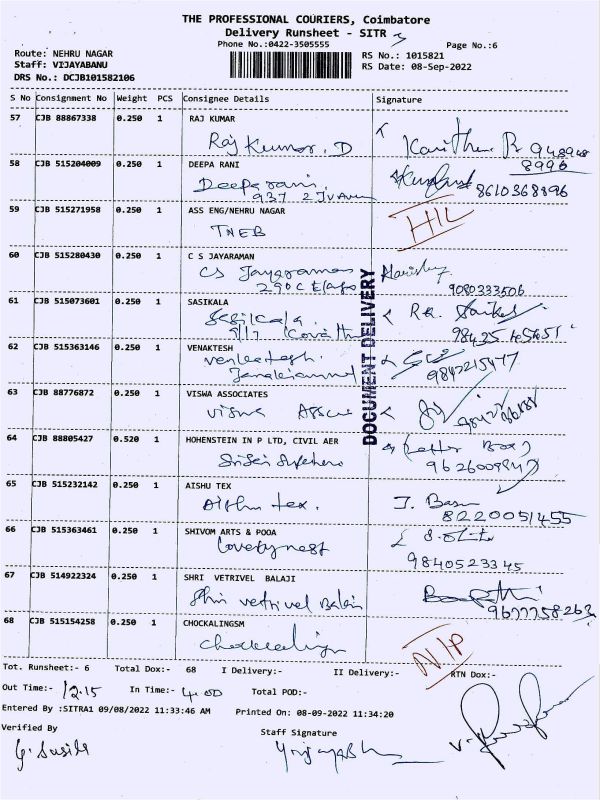 THE PROFESSIONAL COURIERS, Coimbatore
Delivery Runsheet - SITR 3
Phone No.:0422-3505555
Page No.:6
Route: NEHRU NAGAR
RS No.: 1015821
Staff: VIJAYABANU
RS Date: 08-Sep-2022
DRS No.: DCJB101582106
S No Consignment No Weight PCS Consignee Details Signature
57 CJB 88867338 0.250 1 RAJ KUMAR
Raj Kumar. D
58 CJB 515204009 0.250 1 DEEPA RANI
8996
Deepa rani. 8610368896
937
59 CJB 515271958 0.250 1 ASS ENG/NEHRU NAGAR
TNEB
60 CJB 515280430 0.250 1 C S JAYARAMAN
CS Jayaraman
290C
9080333506
61 CJB 515073601 0.250 1 SASIKALA
Sasikala.
62 CJB 515363146 0.250 1 VENAKTESH
Venkatesh.
9842215477
DOCUMENT DELIVERY
63 CJB 88776872 0.250 1 VISWA ASSOCIATES
Viswa
64 CJB 88805427 0.520 1 HOHENSTEIN IN P LTD, CIVIL AER
(Letter Box)
65 CJB 515232142 0.250 1 AISHU TEX
Aishu tex.
8220051455
66 CJB 515363461 0.250 1 SHIVOM ARTS & POOA
Lovelynest
9840523345
67 CJB 514922324 0.250 1 SHRI VETRIVEL BALAJI
Shri vetrivel Balaji
9677758263
68 CJB 515154258 0.250 1 CHOCKALINGSM
Chockalingm
Tot. Runsheet:- 6 Total Dox:- 68 I Delivery:- II Delivery:- RTN Dox:-
Out Time:- 12.15 In Time:- 4.00 Total POD:-
Entered By :SITRA1 09/08/2022 11:33:46 AM Printed On: 08-09-2022 11:34:20
Verified By
Staff Signature